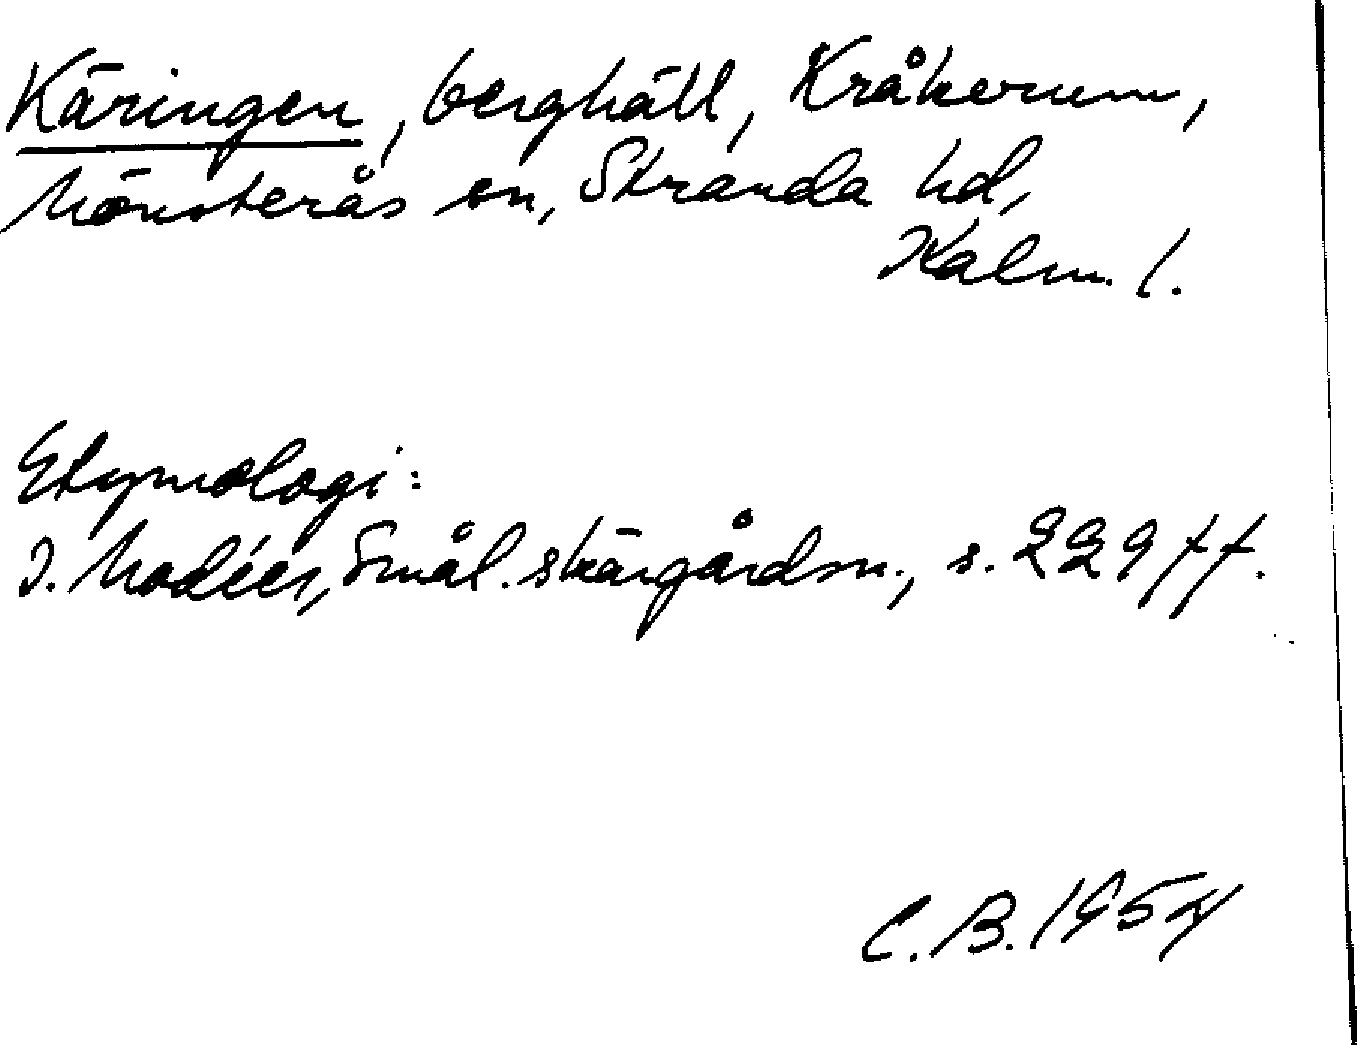 Käringen, berghäll, Kråkerum,
Mönsterås sn, Stranda hd,
Kalm. l.
Etymologi:
I. Modéer, Smål. skärgårdsn., s. 229 ff.
C. B. 1954